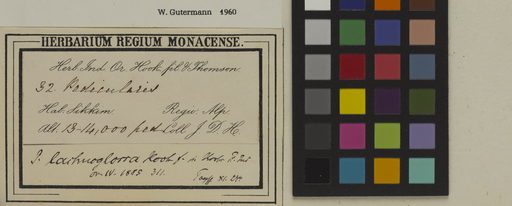 W. Gutermann 1960
HERBARIUM REGIUM MONACENSE.
Herb. Ind. Or. Hook. fil. & Thomson
32 Pedicularis
Hab. Sikkim. Regio. Alp.
Alt. 13-14,000 ped. Coll. J. D. H.
P. lachnoglossa Hook f. in
311.